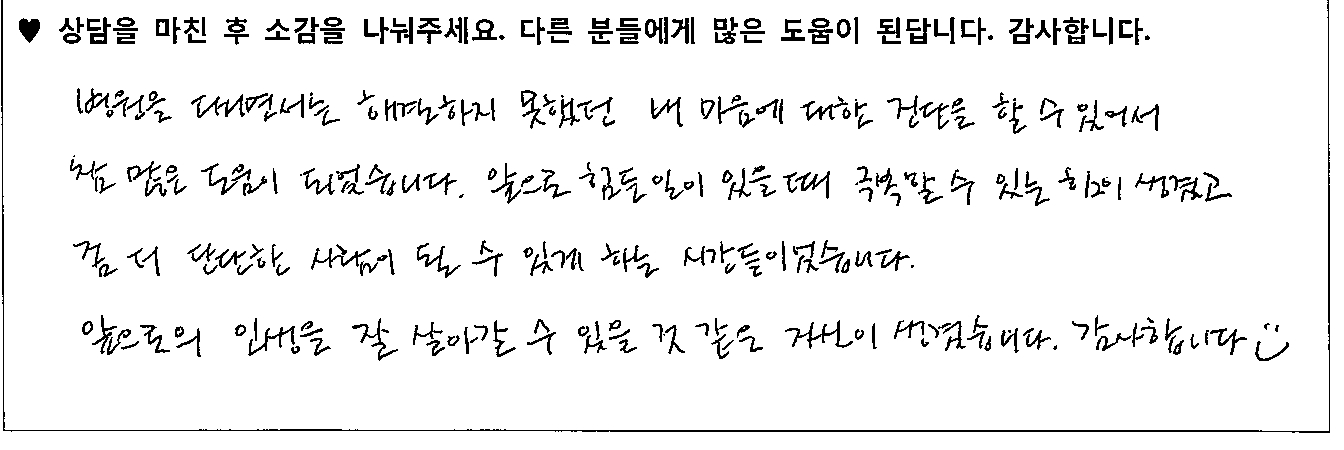 ♥ 상담을 마친 후 소감을 나눠주세요. 다른 분들에게 많은 도움이 된답니다. 감사합니다.
병원을 다니면서는 해결하지 못했던 내 마음에 대한 진단을 할 수 있어서
참 많은 도움이 되었습니다. 앞으로 힘든일이 있을때 극복할 수 있는 힘이 생겼고
좀 더 단단한 사람이 될 수 있게 하는 시간들이었습니다.
앞으로의 인생을 잘 살아갈 수 있을 것 같은 자신이 생겼습니다. 감사합니다